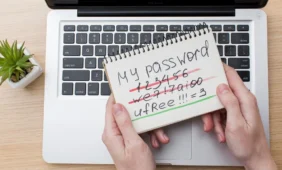 my password
123456
we717a00
ufRee!!!=3